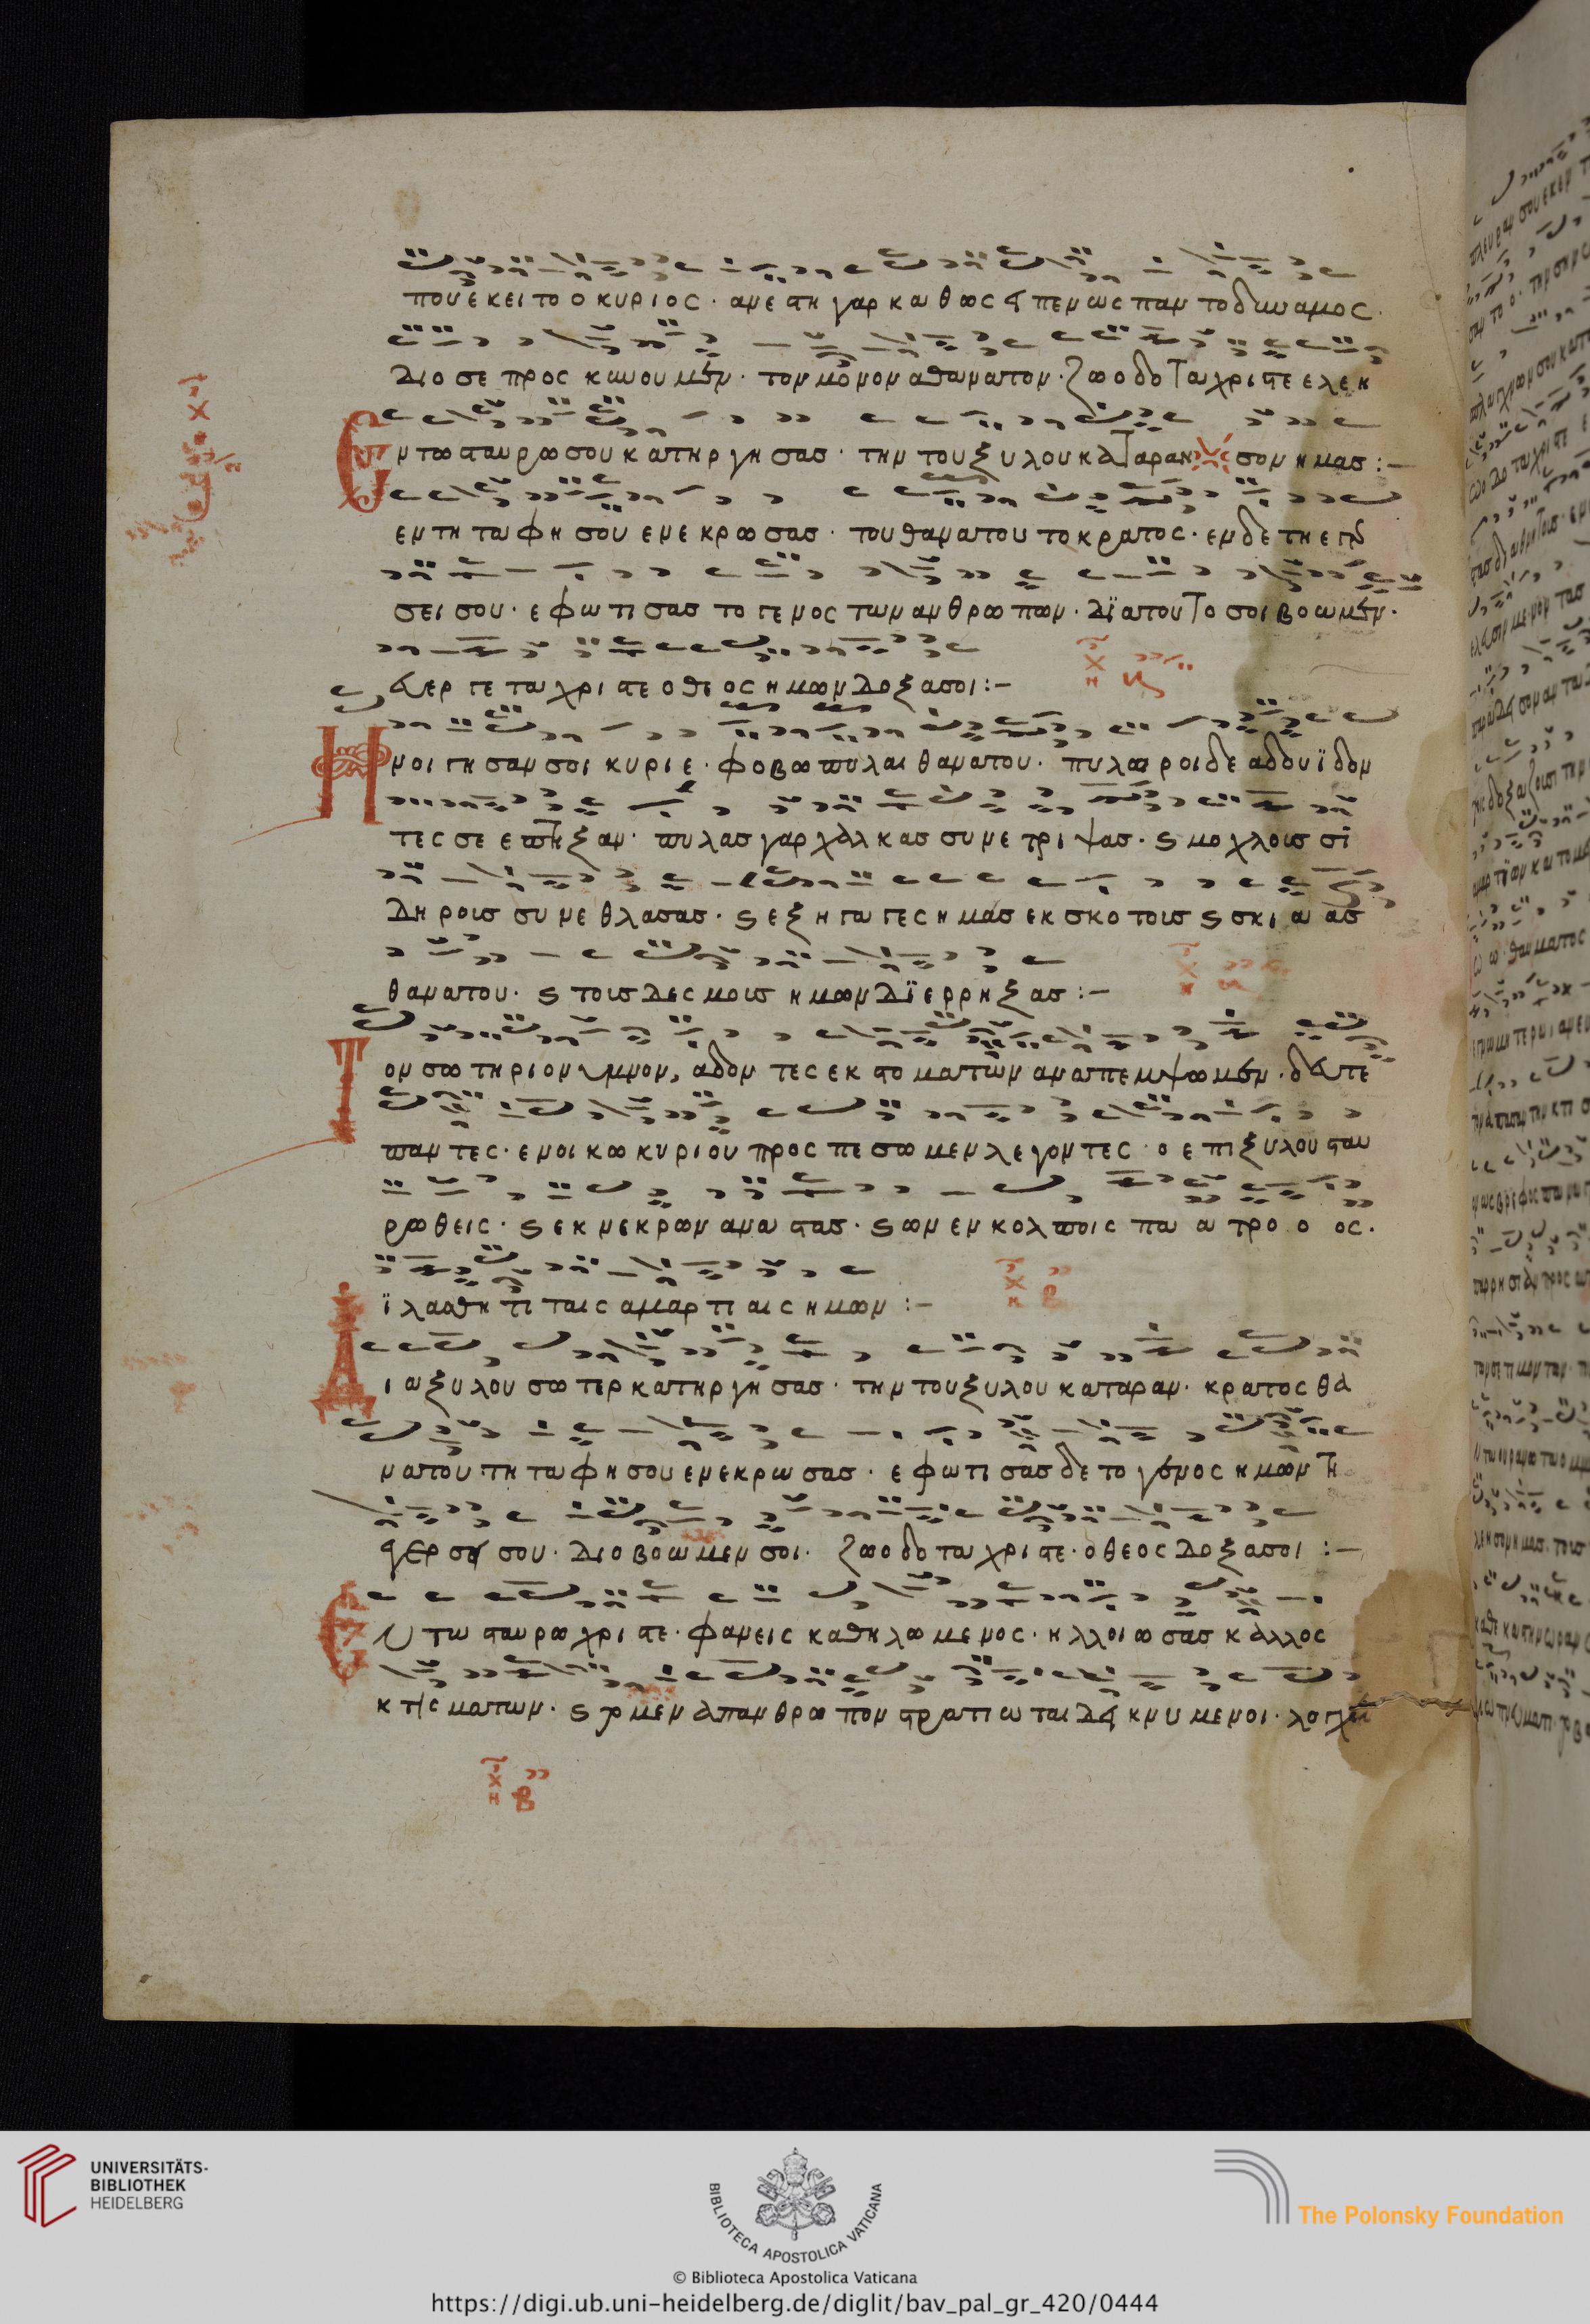 που εκει το ο κυριος · ανεστη γαρ καθως ειπεν ως παντοδυναμος ·
διο σε προσκυνουμεν · τον μονον αθανατον · ζωοδοτα χριστε ελεη
Εν τω σταυρω σου κατηργησας · την του ξυλου καταραν σον ημας :–
εν τη ταφη σου ενεκρωσας · του θανατου το κρατος · εν δε τη εγερ
σει σου · εφωτισας το γενος των ανθρωπων · δϊα τουτο σοι βοωμεν ·
ευεργετα χριστε ο θεος ημων δοξα σοι :–
Ηνοιγησαν σοι κυριε · φοβω πυλαι θανατου · πυλωροι δε αδου ϊδον
τες σε επτηξαν · πυλας γαρ χαλκας συνετριψας · ϗ μοχλους σι
δηρους συνεθλασας · ϗ εξηγαγες ημας εκ σκοτους ϗ σκιαας
θανατου · ϗ τους δεσμους ημων δϊερρηξας :–
Τον σωτηριον υμνον, αδοντες εκ στοματων αναπεμψωμεν · δευτε
παντες · εν οικω κυριου προσπεσωμεν λεγοντες · ο επι ξυλου σταυ
ρωθεις · ϗ εκ νεκρων αναστας · ϗ ων εν κολποις πααατροοος ·
ϊλασθητι ταις αμαρτιαις ημων :–
Δια ξυλου σωτερ κατηργησας · την του ξυλου καταραν · κρατος θα
νατου τη ταφη σου ενεκρωσας · εφωτισας δε το γενος ημων τη
εγερσει σου · διο βοωμεν σοι · ζωοδοτα χριστε · ο θεος δοξα σοι :–
Εν τω σταυρω χριστε · φανεις καθηλωμενος · ηλλοιωσας καλλος
κτισματων · ϗ το μεν απανθρωπον στρατιωται δεικνυμενοι · λογχη
UNIVERSITÄTS-
BIBLIOTHEK
HEIDELBERG
BIBLIOTECA APOSTOLICA VATICANA
The Polonsky Foundation
© Biblioteca Apostolica Vaticana
https://digi.ub.uni-heidelberg.de/diglit/bav_pal_gr_420/0444